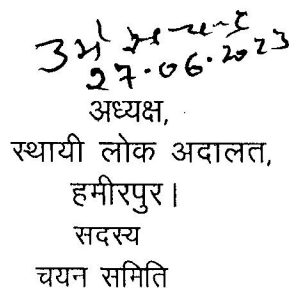 27.06.2023
अध्यक्ष,
स्थायी लोक अदालत,
हमीरपुर।
सदस्य
चयन समिति